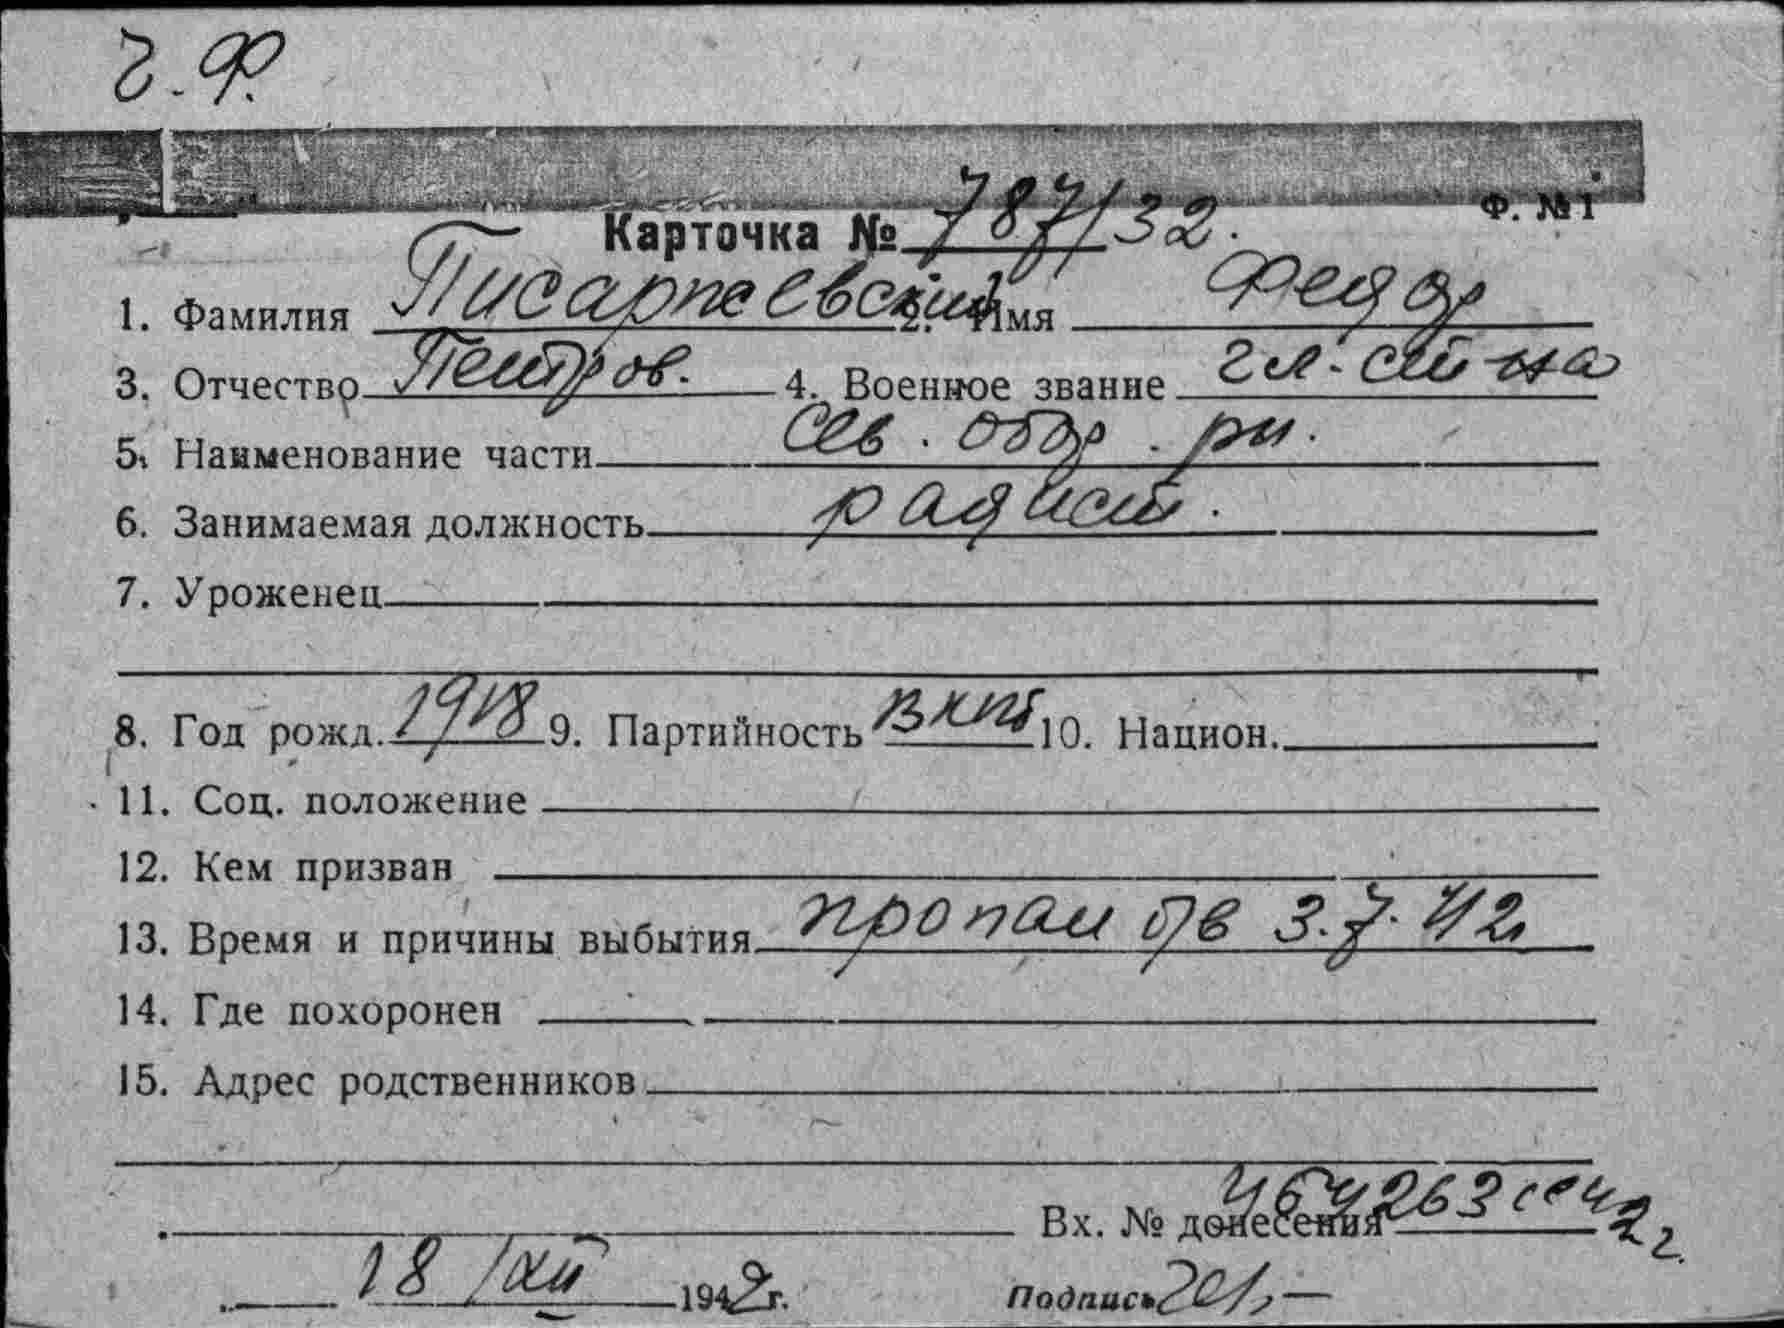 Ч.Ф.
Ф. №1
Карточка № 787/32.
1. Фамилия Писаржевский 2. Имя Федор
3. Отчество Петров. 4. Военное звание гл. ст-на
5. Наименование части Сев. обор. рн.
6. Занимаемая должность радист.
7. Уроженец
8. Год рожд. 1918 9. Партийность ВКПб 10. Национ.
11. Соц. положение
12. Кем призван
13. Время и причины выбытия пропал б/в 3.7.42
14. Где похоронен
15. Адрес родственников
Вх. № донесения
18/XII 1942г. Подпись